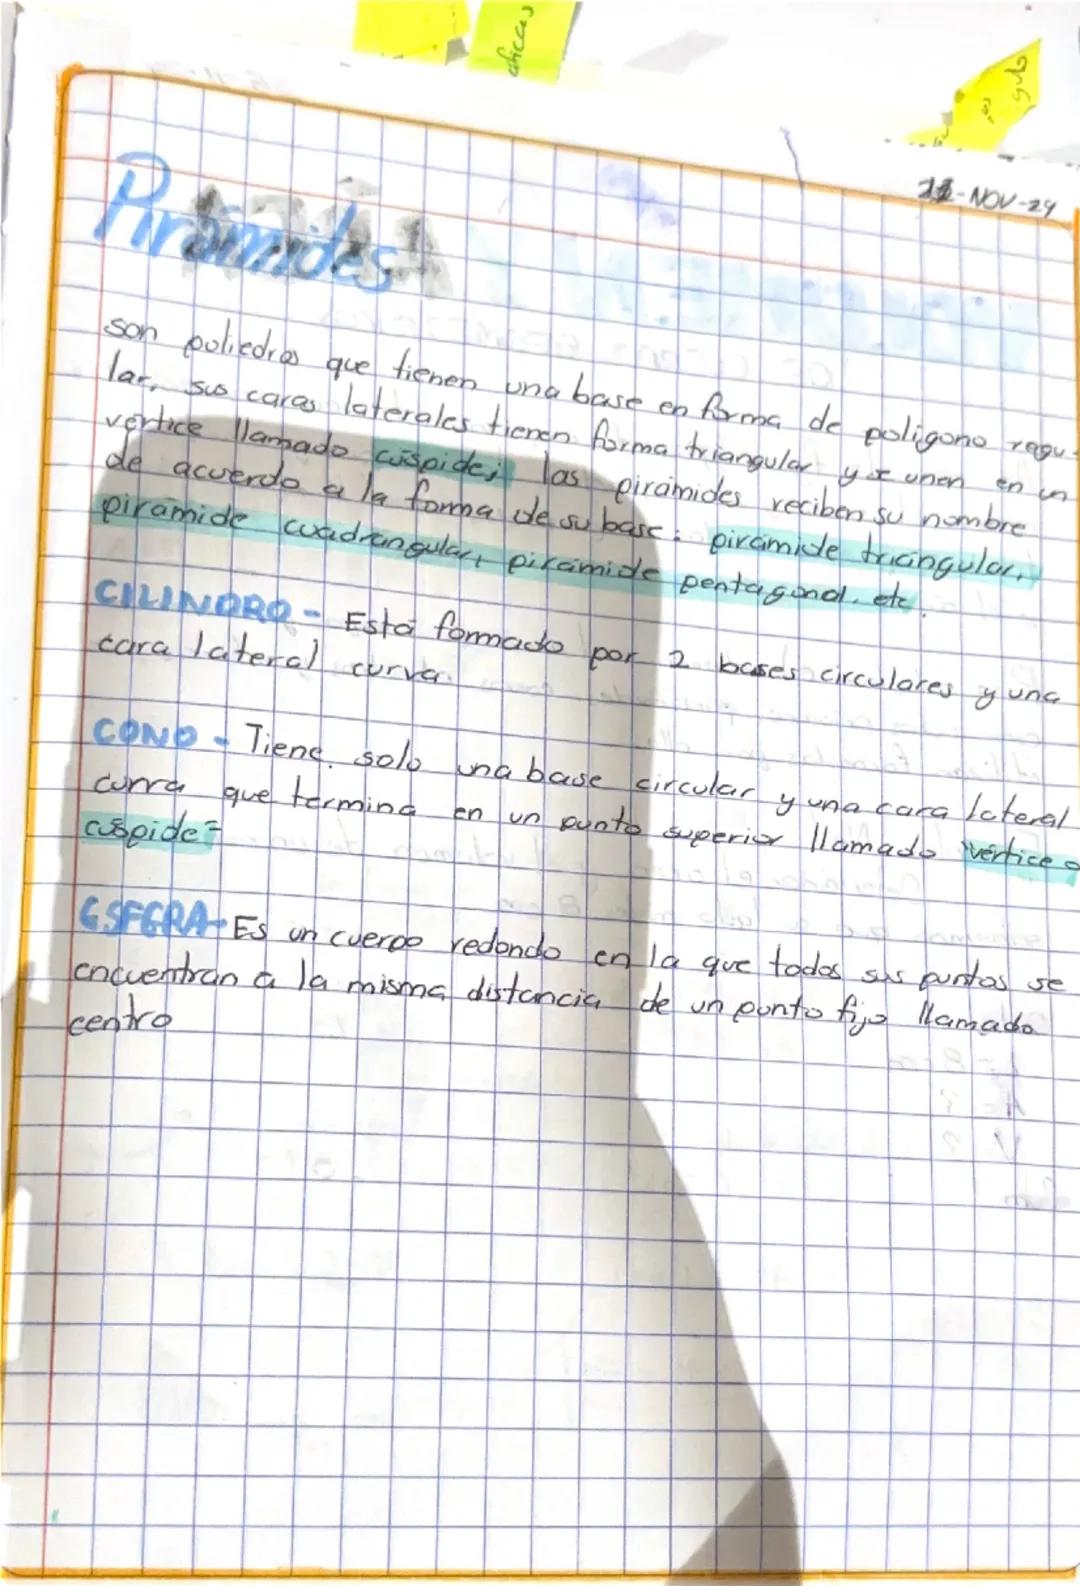 ficas
22-NOV-24
Pirámides
son poliedros que tienen una base en forma de poligono regu-
lar, sus caras laterales tienen forma triangular y se unen en un
vértice llamado cúspide; las pirámides reciben su nombre
de acuerdo a la forma de su base: pirámide triángular,
pirámide cuadrangular, pirámide pentagonal. etc.
CILINDRO - Está formado por 2 bases circulares y una
cara lateral curva.
CONO - Tiene solo una base circular y una cara lateral
curva que termina en un punto superior llamado vértice o
cúspide-
ESFERA- Es un cuerpo redondo en la que todos sus puntos se
encuentran a la misma distancia de un punto fijo llamado
centro